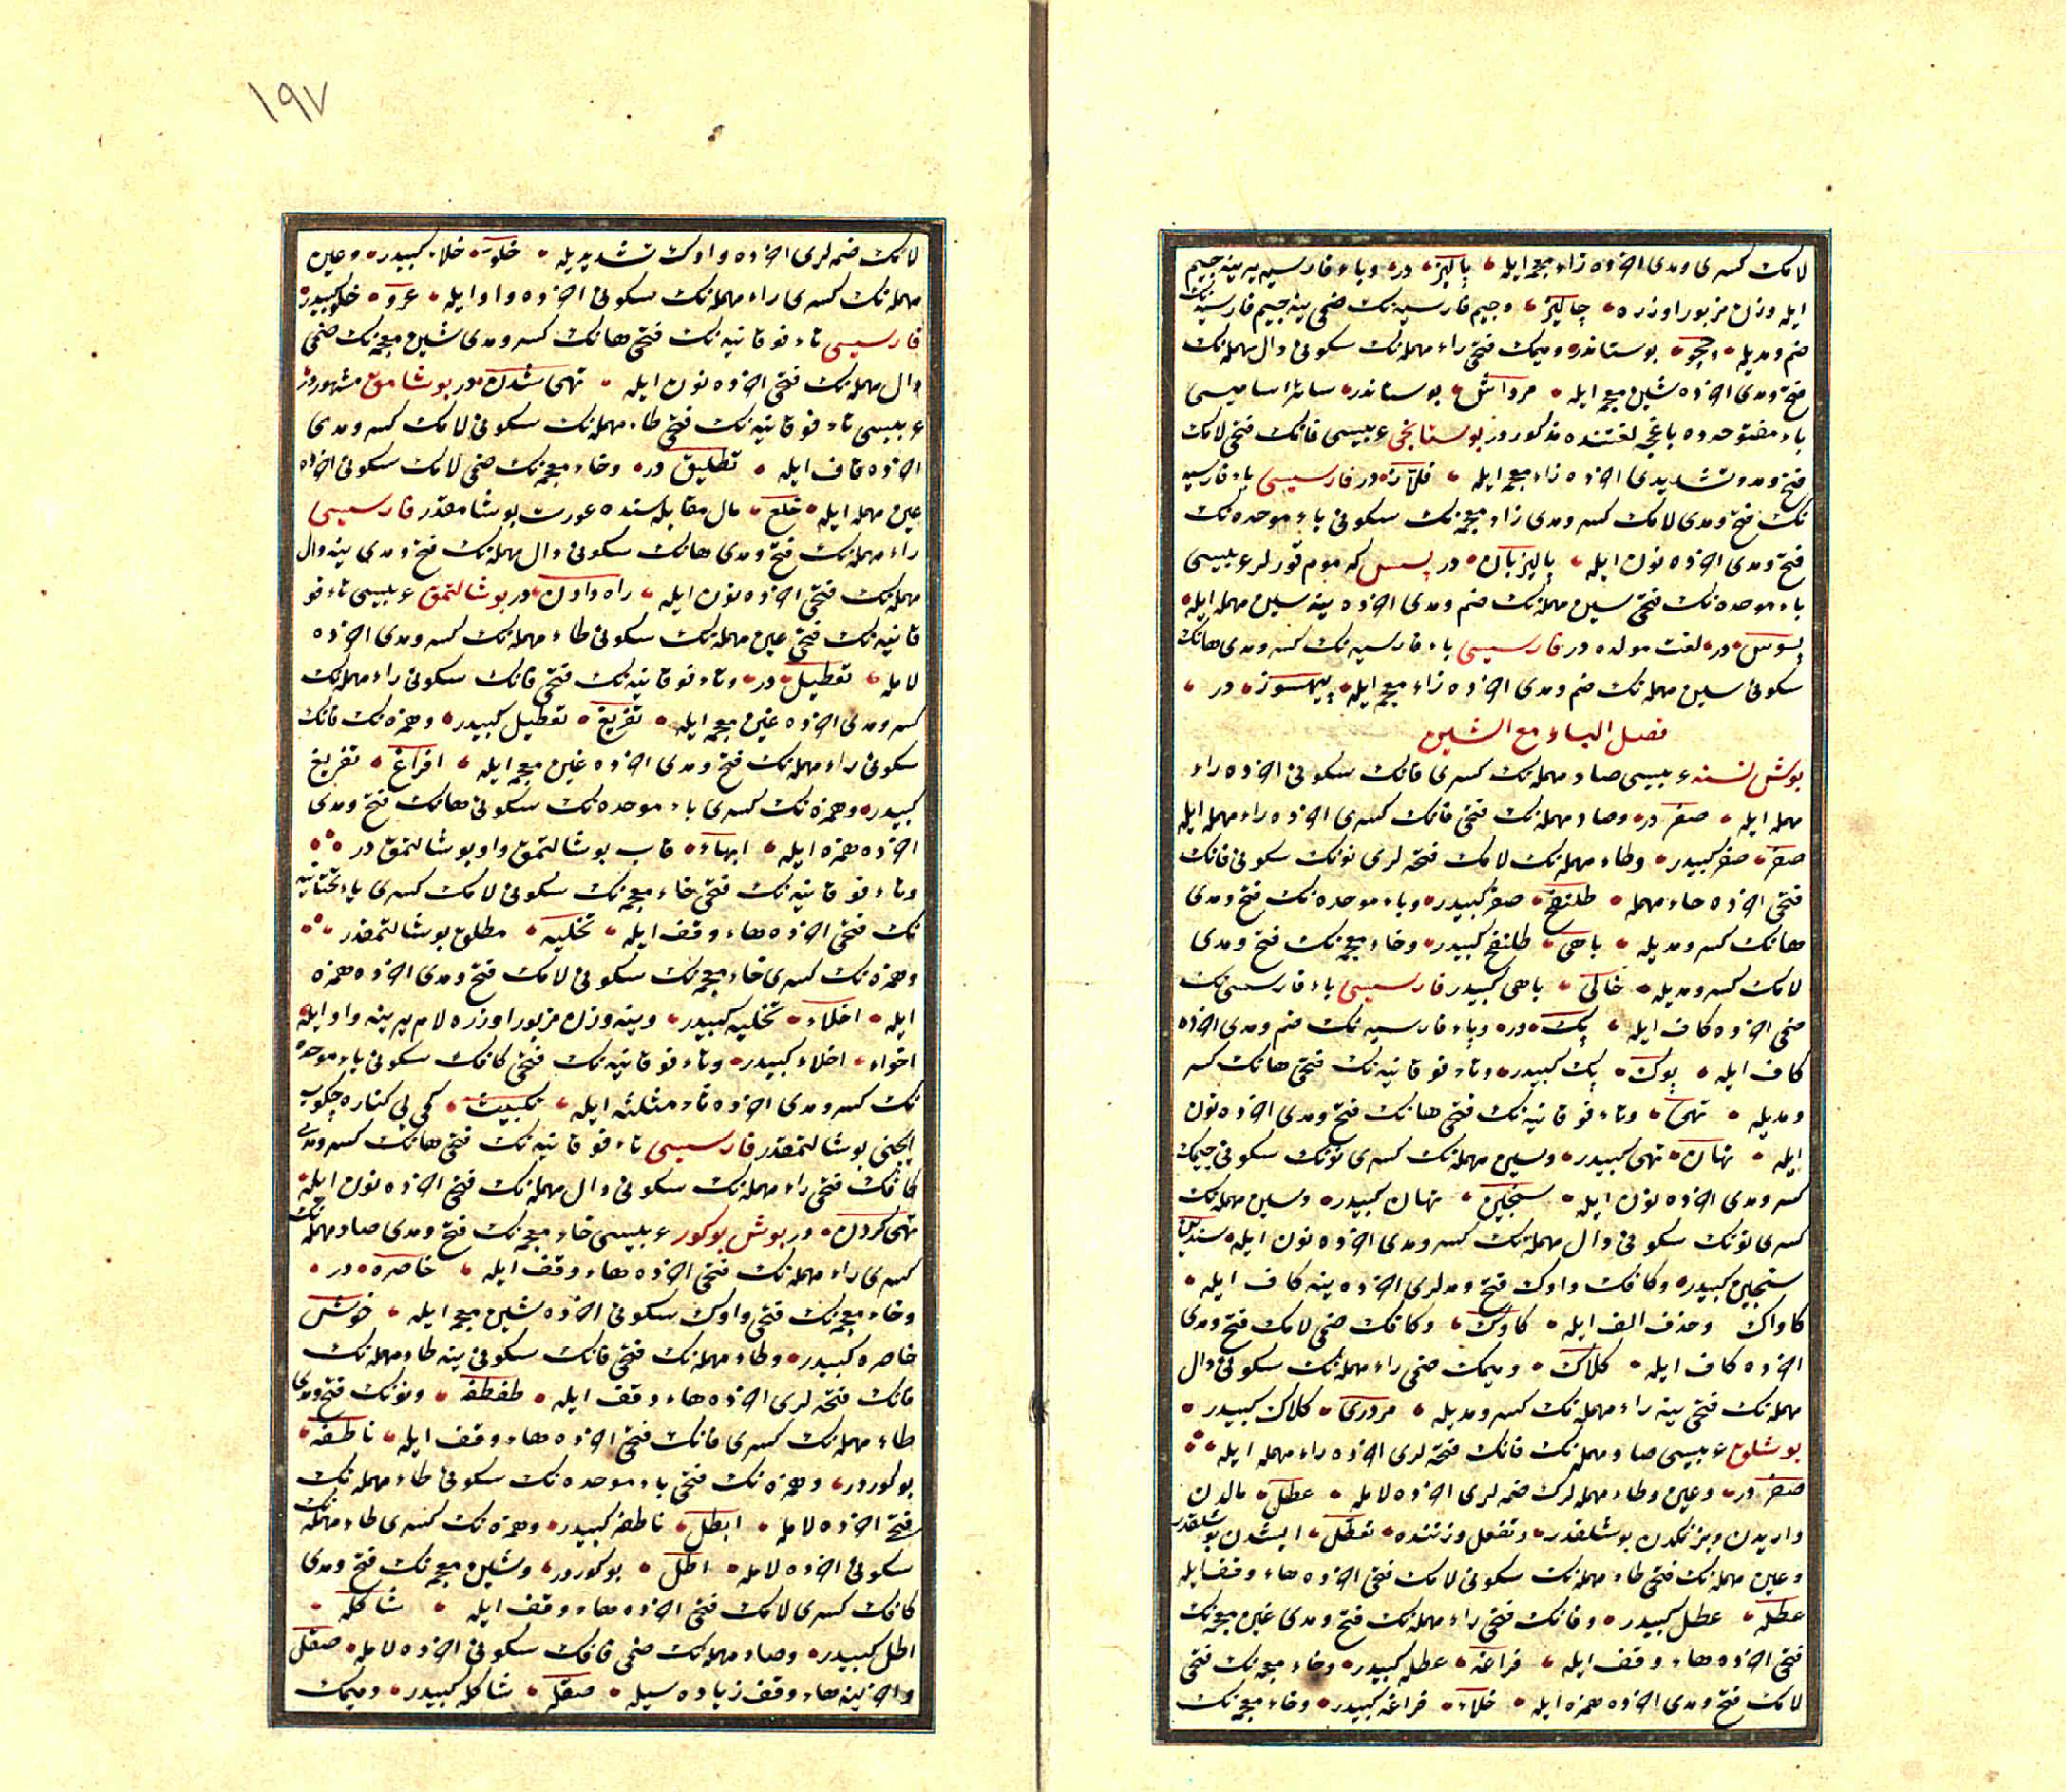 لامك كسرى ومدى اخرده زاء معجمه ايله پاليز در وباء فارسيه يرينه جيم
ايله وزن مزبور اوزره جاليز وجيم فارسيه نك ضمى ينه جيم فارسيه نك
ضم ومديله چچو بوستاندر وميمك فتحى راء مهمله نك سكونى دال مهمله نك
فتح ومدى اخرده شين معجمه ايله مرداش بوستاندر سائر اساميسى
باء مفتوحه ده باغچه لغتنده مذكوردر بوستانجى عربيسى فانك فتحى لامك
فتح ومد وتشديدى اخرده زاء معجمه ايله در فارسيسى باء فارسيه
نك فتح ومدى لامك كسر ومدى زاء معجمه نك سكونى باء موحده نك
فتح ومدى اخرده نون ايله پاليزبان در بسس كه موم قورلر عربيسى
باء موحده نك فتحى سين مهمله نك ضم ومدى اخرده ينه سين مهمله ايله
بسوس در لغت مولده در فارسيسى باء فارسيه نك كسر ومدى هانك
سكونى سين مهمله نك ضم ومدى اخرده زاء معجمه ايله پيهسوز در
فصل الباء مع الشين
بوش نسنه عربيسى صاد مهمله نك كسرى فانك سكونى اخرده راء
مهمله ايله صفر در وصاد مهمله نك فتحى فانك كسرى اخرده راء مهمله ايله
صفر صفر كبيدر وطاء مهمله نك لامك فتحه لرى نونك سكونى فانك
فتحى اخرده حاء مهمله طلنفح صفر كبيدر وباء موحده نك فتح ومدى
هانك كسر ومديله باهى طلنفح كبيدر وخاء معجمه نك فتح ومدى
لامك كسر ومديله خالى باهى كبيدر فارسيسى باء فارسيه نك
ضمى اخرده كاف ايله پك در وباء فارسيه نك ضم ومدى اخرده
كاف ايله پوك پك كبيدر وتاء فوقانيه نك فتحى هانك كسر
ومديله تهى وتاء فوقانيه نك فتحى هانك فتح ومدى اخرده نون
ايله تهان تهى كبيدر وسين مهمله نك كسرى نونك سكونى جيمك
كسر ومدى اخرده نون ايله سنجين تهان كبيدر وسين مهمله نك
كسرى نونك سكونى دال مهمله نك كسر ومدى اخرده نون ايله سندين
سنجين كبيدر وكافك واوك فتح ومدلرى اخرده ينه كاف ايله
كاواك وحذف الف ايله كاوك وكافك ضمى لامك فتح ومدى
اخرده كاف ايله كلاك وميمك ضمى راء مهمله نك سكونى دال
مهمله نك فتحى ينه راء مهمله نك كسر ومديله مردرى كلاك كبيدر
بوشلق عربيسى صاد مهمله نك فانك فتحه لرى اخرده راء مهمله ايله
صفر در وعين وطاء مهمله لرك ضمه لرى اخرده لامله عطل مالدن
واريدن وبزنكدن بوشلقدر وتفعل وزننده تعطل ايشدن بوشلقدر
وعين مهمله نك فتحى طاء مهمله نك سكونى لامك فتحى اخرده هاء وقف ايله
عطله عطل كبيدر وفانك فتحى راء مهمله نك فتح ومدى غين معجمه نك
فتحى اخرده هاء وقف ايله فراغه عطله كبيدر وخاء معجمه نك فتحى
لامك فتح ومدى اخرده همزه ايله خلاء فراغه كبيدر وخاء معجمه نك
١٩٧
لامك ضمه لرى اخرده واوك تشديديله خلوّ خلاء كبيدر وعين
مهمله نك كسرى راء مهمله نك سكونى اخرده واو ايله عرو خلو كبيدر
فارسيسى تاء فوقانيه نك فتحى هانك كسر ومدى شين معجمه نك ضمى
دال مهمله نك فتحى اخرده نون ايله تهى شدن در بوشامق مشهوردر
عربيسى تاء فوقانيه نك فتحى طاء مهمله نك سكونى لامك كسر ومدى
اخرده قاف ايله تطليق در وخاء معجمه نك ضمى لامك سكونى اخرده
عين مهمله ايله خلع مال مقابله سنده عورت بوشامقدر فارسيسى
راء مهمله نك فتح ومدى هانك سكونى دال مهمله نك فتح ومدى ينه دال
مهمله نك فتحى اخرده نون ايله راه دادن در بوشالتمق عربيسى تاء فو
قانيه نك فتحى عين مهمله نك سكونى طاء مهمله نك كسر ومدى اخرده
لامله تعطيل در وتاء فوقانيه نك فتحى فانك سكونى راء مهمله نك
كسر ومدى اخرده غين معجمه ايله تفريغ تعطيل كبيدر وهمزه نك فانك
سكونى راء مهمله نك فتح ومدى اخرده غين معجمه ايله افراغ تفريغ
كبيدر وهمزه نك كسرى باء موحده نك سكونى هانك فتح ومدى
اخرده همزه ايله ابهاء قاب بوشالتمق واو بوشالتمق در
وتاء فوقانيه نك فتحى خاء معجمه نك سكونى لامك كسرى ياء تحتانيه
نك فتحى اخرده هاء وقف ايله تخليه مطلق بوشالتمقدر
وهمزه نك كسرى خاء معجمه نك سكونى لامك فتح ومدى اخرده همزه
ايله اخلاء تخليه كبيدر وينه وزن مزبور اوزره لام يرينه واو ايله
اخواء اخلاء كبيدر وتاء فوقانيه نك فتحى كافك سكونى باء موحده
نك كسر ومدى اخرده ثاء مثلثه ايله تكبيث كمى يى كناره چكوب
ايچنى بوشالتمقدر فارسيسى تاء فوقانيه نك فتحى هانك كسر ومدى
كافك فتحى راء مهمله نك سكونى دال مهمله نك فتحى اخرده نون ايله
تهى كردن در بوش بوكور عربيسى خاء معجمه نك فتح ومدى صاد مهمله نك
كسرى راء مهمله نك فتحى اخرده هاء وقف ايله خاصره در
وخاء معجمه نك فتحى واوك سكونى اخرده شين معجمه ايله خوش
خاصره كبيدر وطاء مهمله نك فتحى فانك سكونى ينه طاء مهمله نك
فانك فتحه لرى اخرده هاء وقف ايله طفطفه ونونك فتح ومدى
طاء مهمله نك كسرى فانك فتحى اخرده هاء وقف ايله ناطفه
بوكوردر وهمزه نك فتحى باء موحده نك سكونى طاء مهمله نك
فتحى اخرده لامله ابطل ناطفه كبيدر وهمزه نك كسرى طاء مهمله نك
سكونى اخرده لامله اطل بوكوردر وشين معجمه نك فتح ومدى
كافك كسرى لامك فتحى اخرده هاء وقف ايله شاكله
اطل كبيدر وصاد مهمله نك ضمى قافك سكونى اخرده لامله صقل
واخرينه هاء وقف زياده سيله صقله شاكله كبيدر وميمك